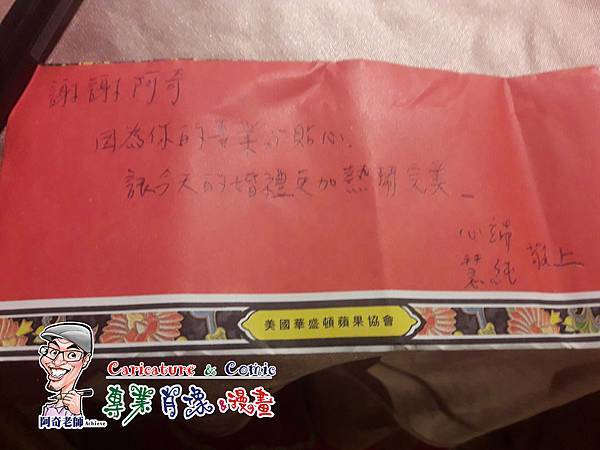 謝謝阿奇
因為你的專業与貼心,
讓今天的婚禮更加熱鬧完美。
心瑞
慧純 敬上
美國華盛頓蘋果協會
Caricature & Comic
專業肖像&漫畫
阿奇老師 Achieve